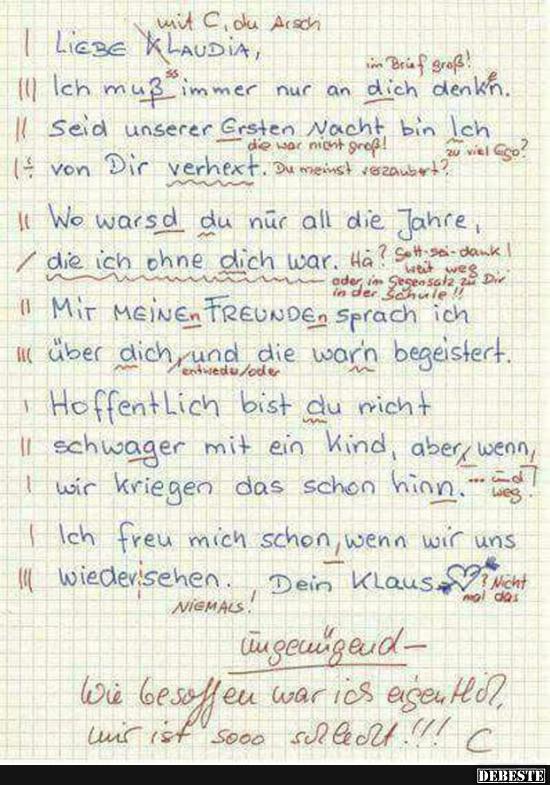 mit C, du Arsch
| LIEBE KLAUDIA,
im Brief groß!
||| Ich muß ss immer nur an dich denk'n. e
|| Seid unserer Ersten Nacht bin Ich
die war nicht groß! zu viel Ego?
| ÷ von Dir verhext. Du meinst verzaubert?
|| Wo warsd du nür all die Jahre,
/ die ich ohne dich war. Hä? Gott-sei-dank!
weit weg
oder im Gegensatz zu Dir
in der Schule!!
|| MIT MEINEn FREUNDEn sprach ich
||| über dich, und die war'n begeistert.
entweder/oder
| HoffentLich bist du nicht
|| schwager mit ein Kind, aber, wenn,
| wir kriegen das schon hinn. ... und weg!
| Ich freu mich schon, wenn wir uns
||| wieder sehen. Dein KLAUS ? Nicht
mal das
NIEMALS!
ungenügend –
Wie besoffen war ich eigentlich,
mir ist sooo schlecht!!! C
DEBESTE